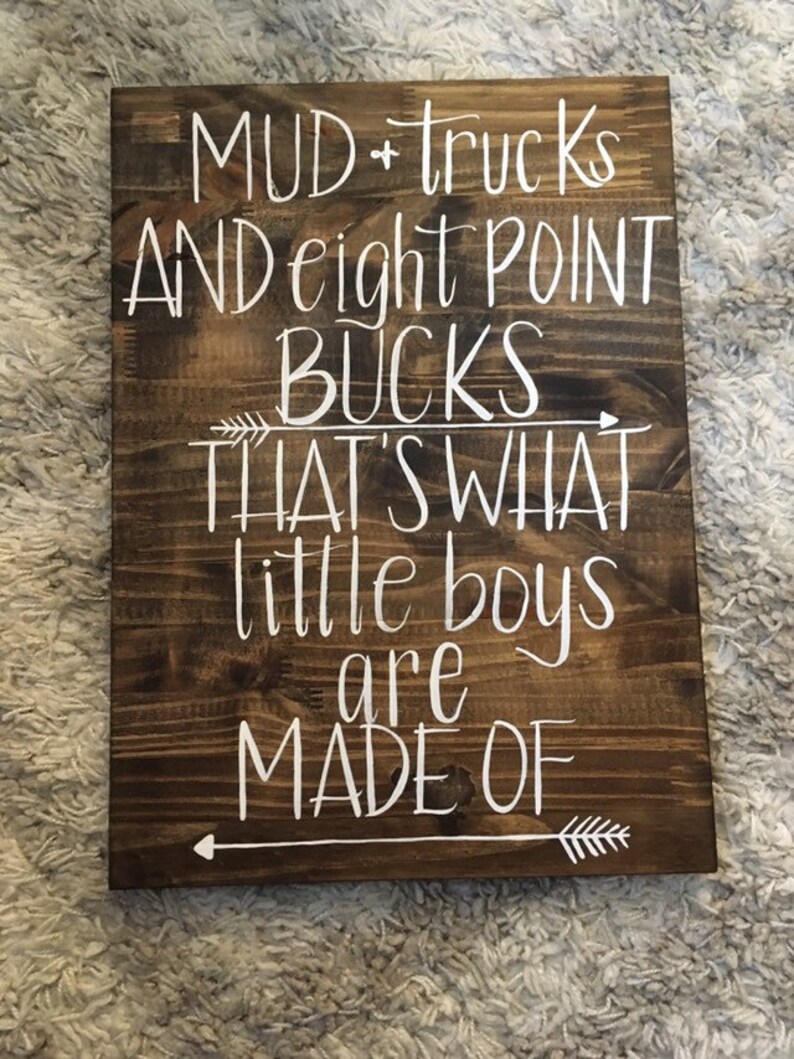 MUD + trucks
AND eight POINT
BUCKS
THAT'S WHAT
little boys
are
MADE OF